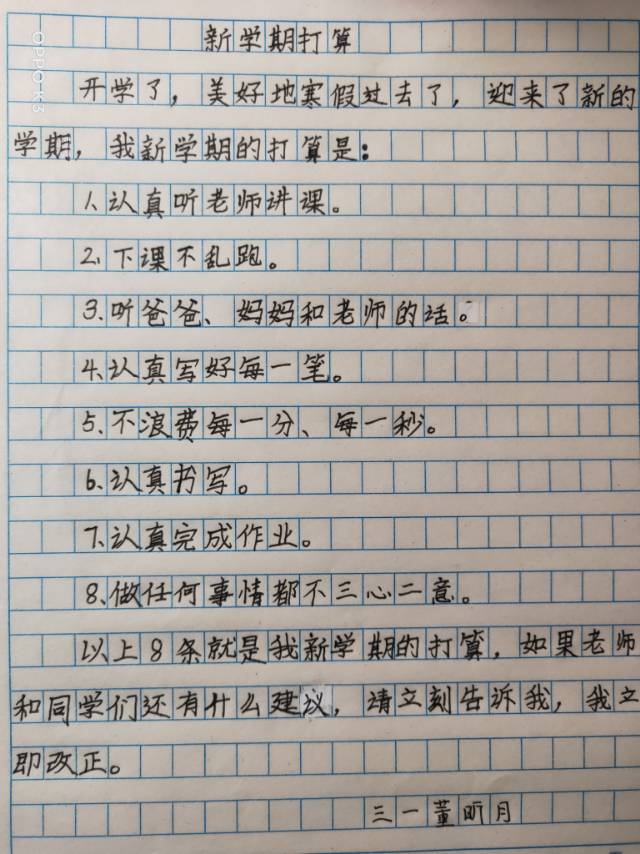 新学期打算
开学了，美好地寒假过去了，迎来了新的
学期，我新学期的打算是：
1、认真听老师讲课。
2、下课不乱跑。
3、听爸爸、妈妈和老师的话。
4、认真写好每一笔。
5、不浪费每一分、每一秒。
6、认真书写。
7、认真完成作业。
8、做任何事情都不三心二意。
以上8条就是我新学期的打算，如果老师
和同学们还有什么建议，请立刻告诉我，我立
即改正。
三一董昕月
OPPO K3